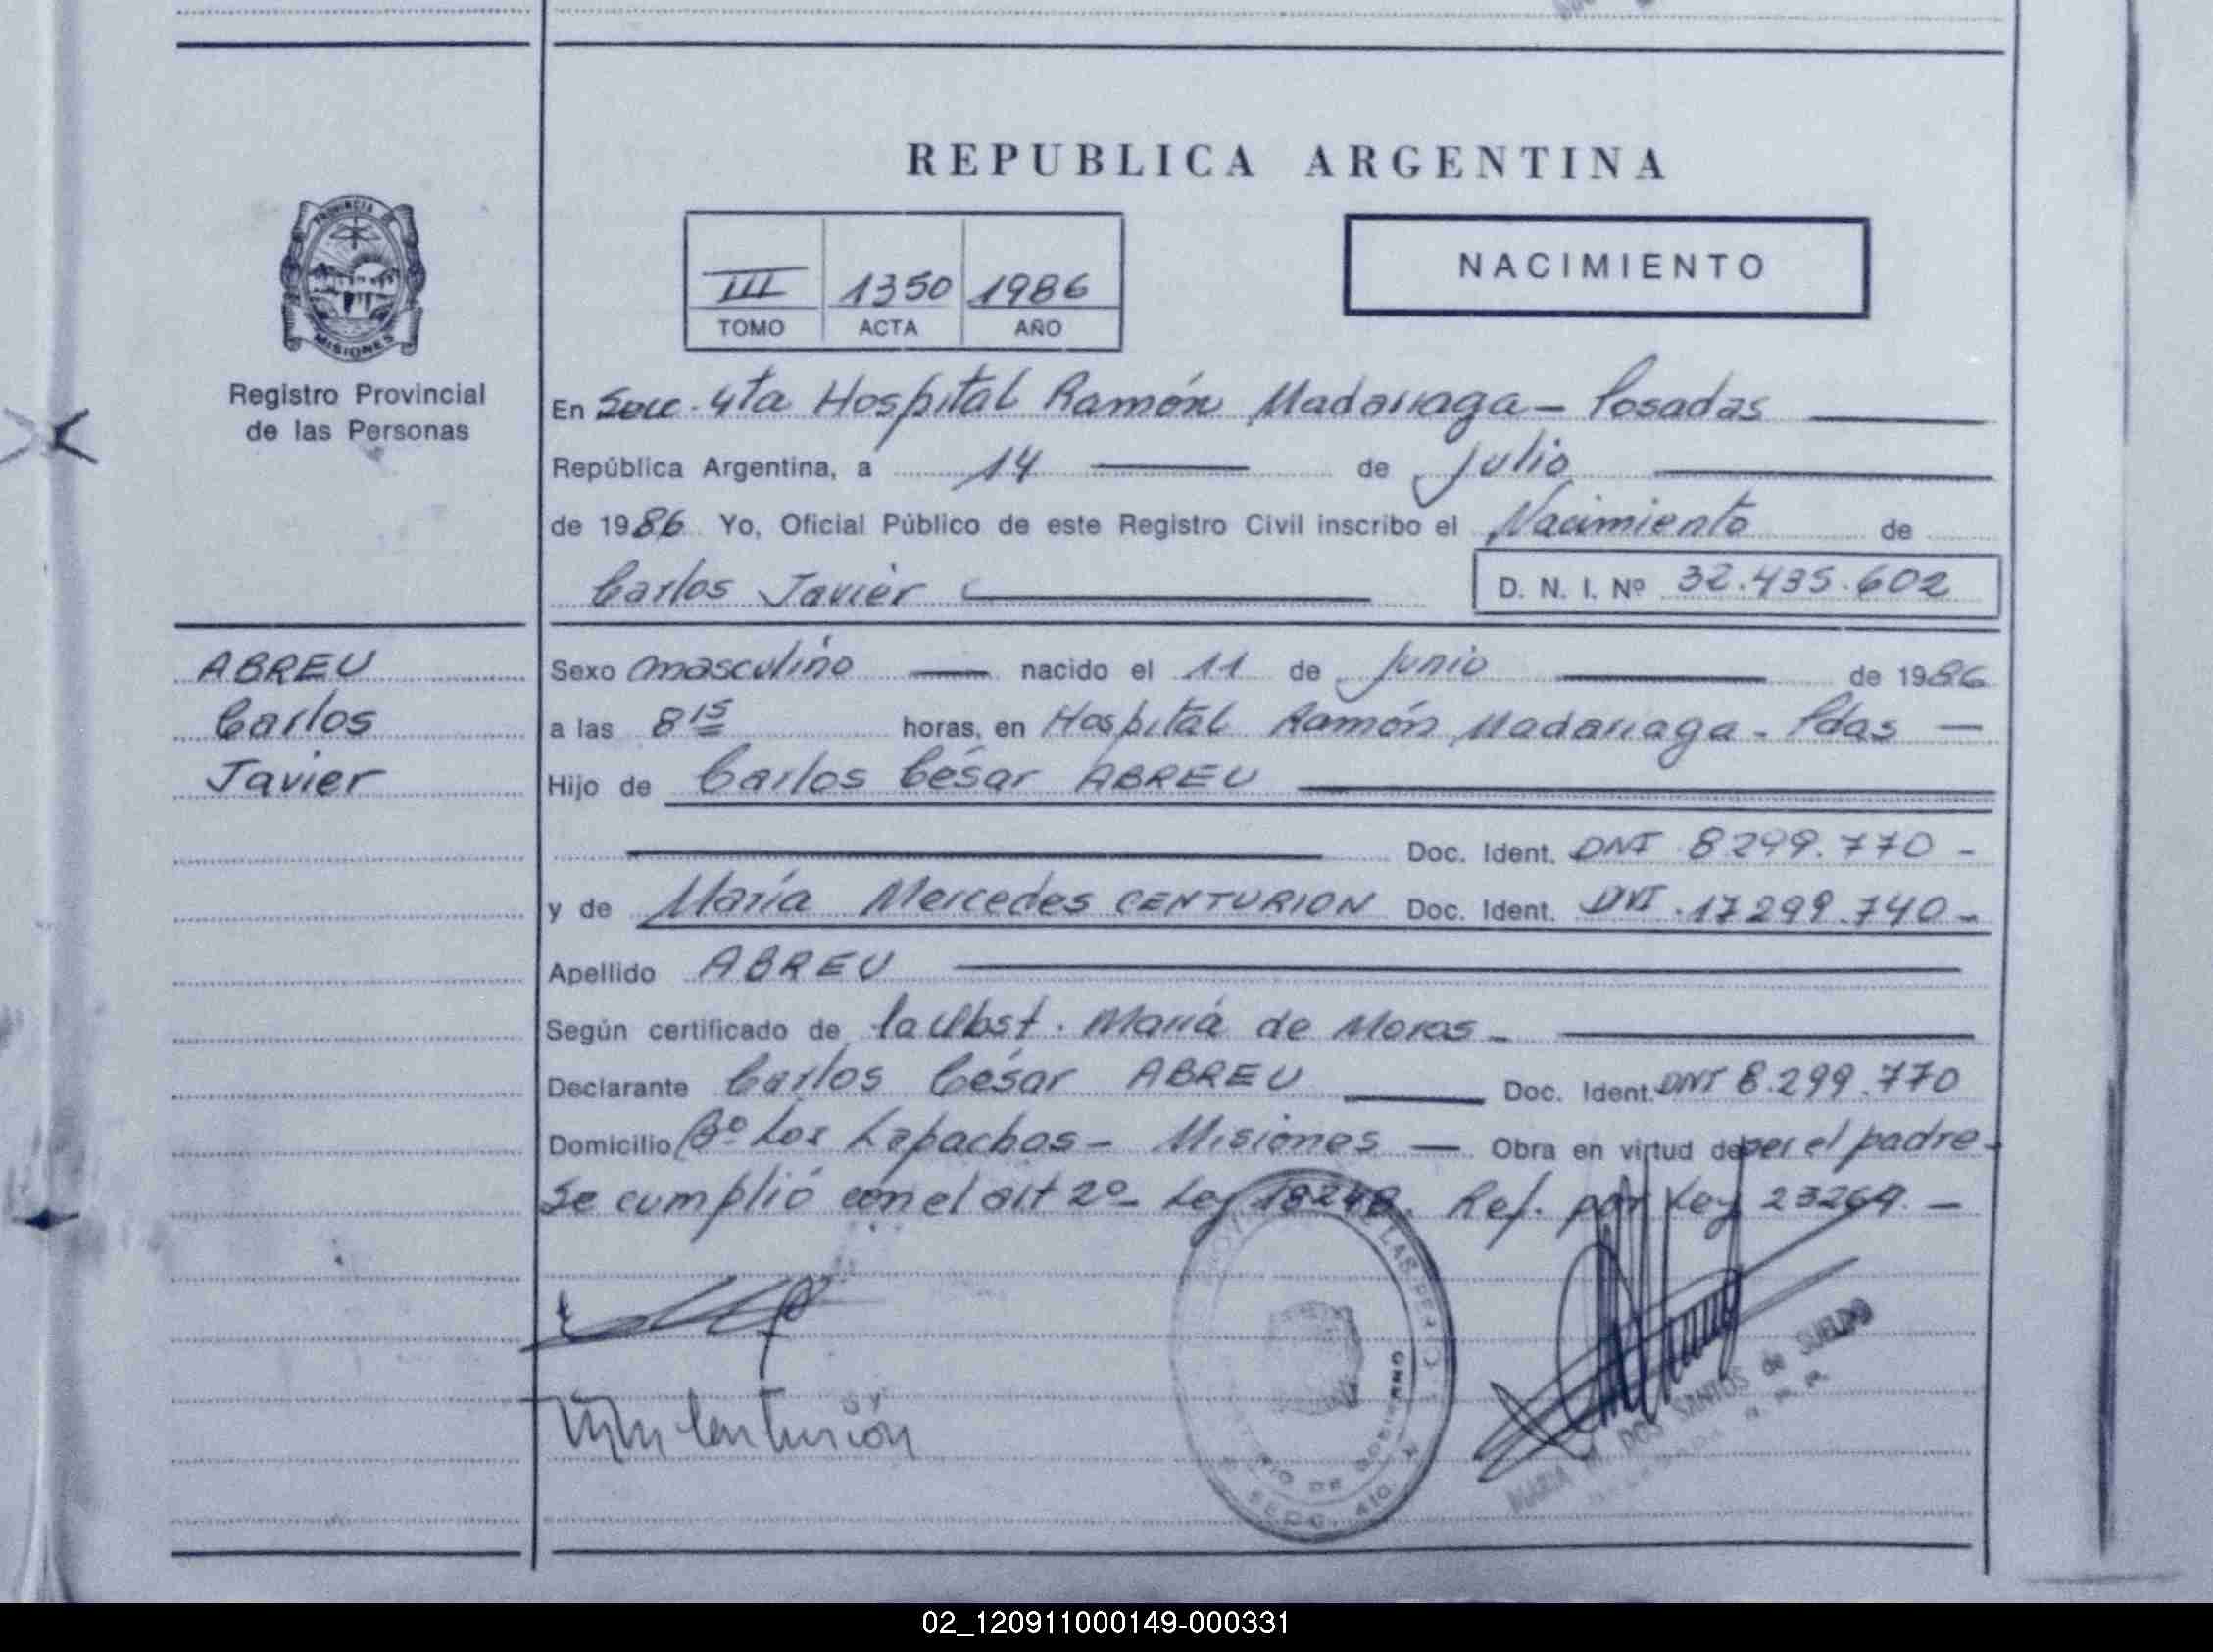 REPUBLICA ARGENTINA
PROVINCIA DE
MISIONES
Registro Provincial
de las Personas
III 1350 1986
TOMO ACTA AÑO
NACIMIENTO
En Secc. 4ta Hospital Ramón Madariaga - Posadas
República Argentina, a 14 de Julio
de 1986 Yo, Oficial Público de este Registro Civil inscribo el Nacimiento de
Carlos Javier D. N. I. Nº 32.435.602
ABREU
Carlos
Javier
Sexo masculino nacido el 11 de Junio de 1986
a las 8 15 horas, en Hospital Ramón Madariaga - Pdas -
Hijo de Carlos César ABREU
Doc. Ident. DNI 8299.770 -
y de María Mercedes CENTURION Doc. Ident. DNI 17299.740 -
Apellido ABREU
Según certificado de la Obst. María de Moras -
Declarante Carlos César ABREU Doc. Ident. DNI 8.299.770
Domicilio Bº Los Lapachos - Misiones - Obra en virtud de ser el padre -
Se cumplió con el art 2º - Ley 18248. Ref. por Ley 23264. -
Centurión
MARIA M. DOS SANTOS de SUELDO
02_120911000149-000331